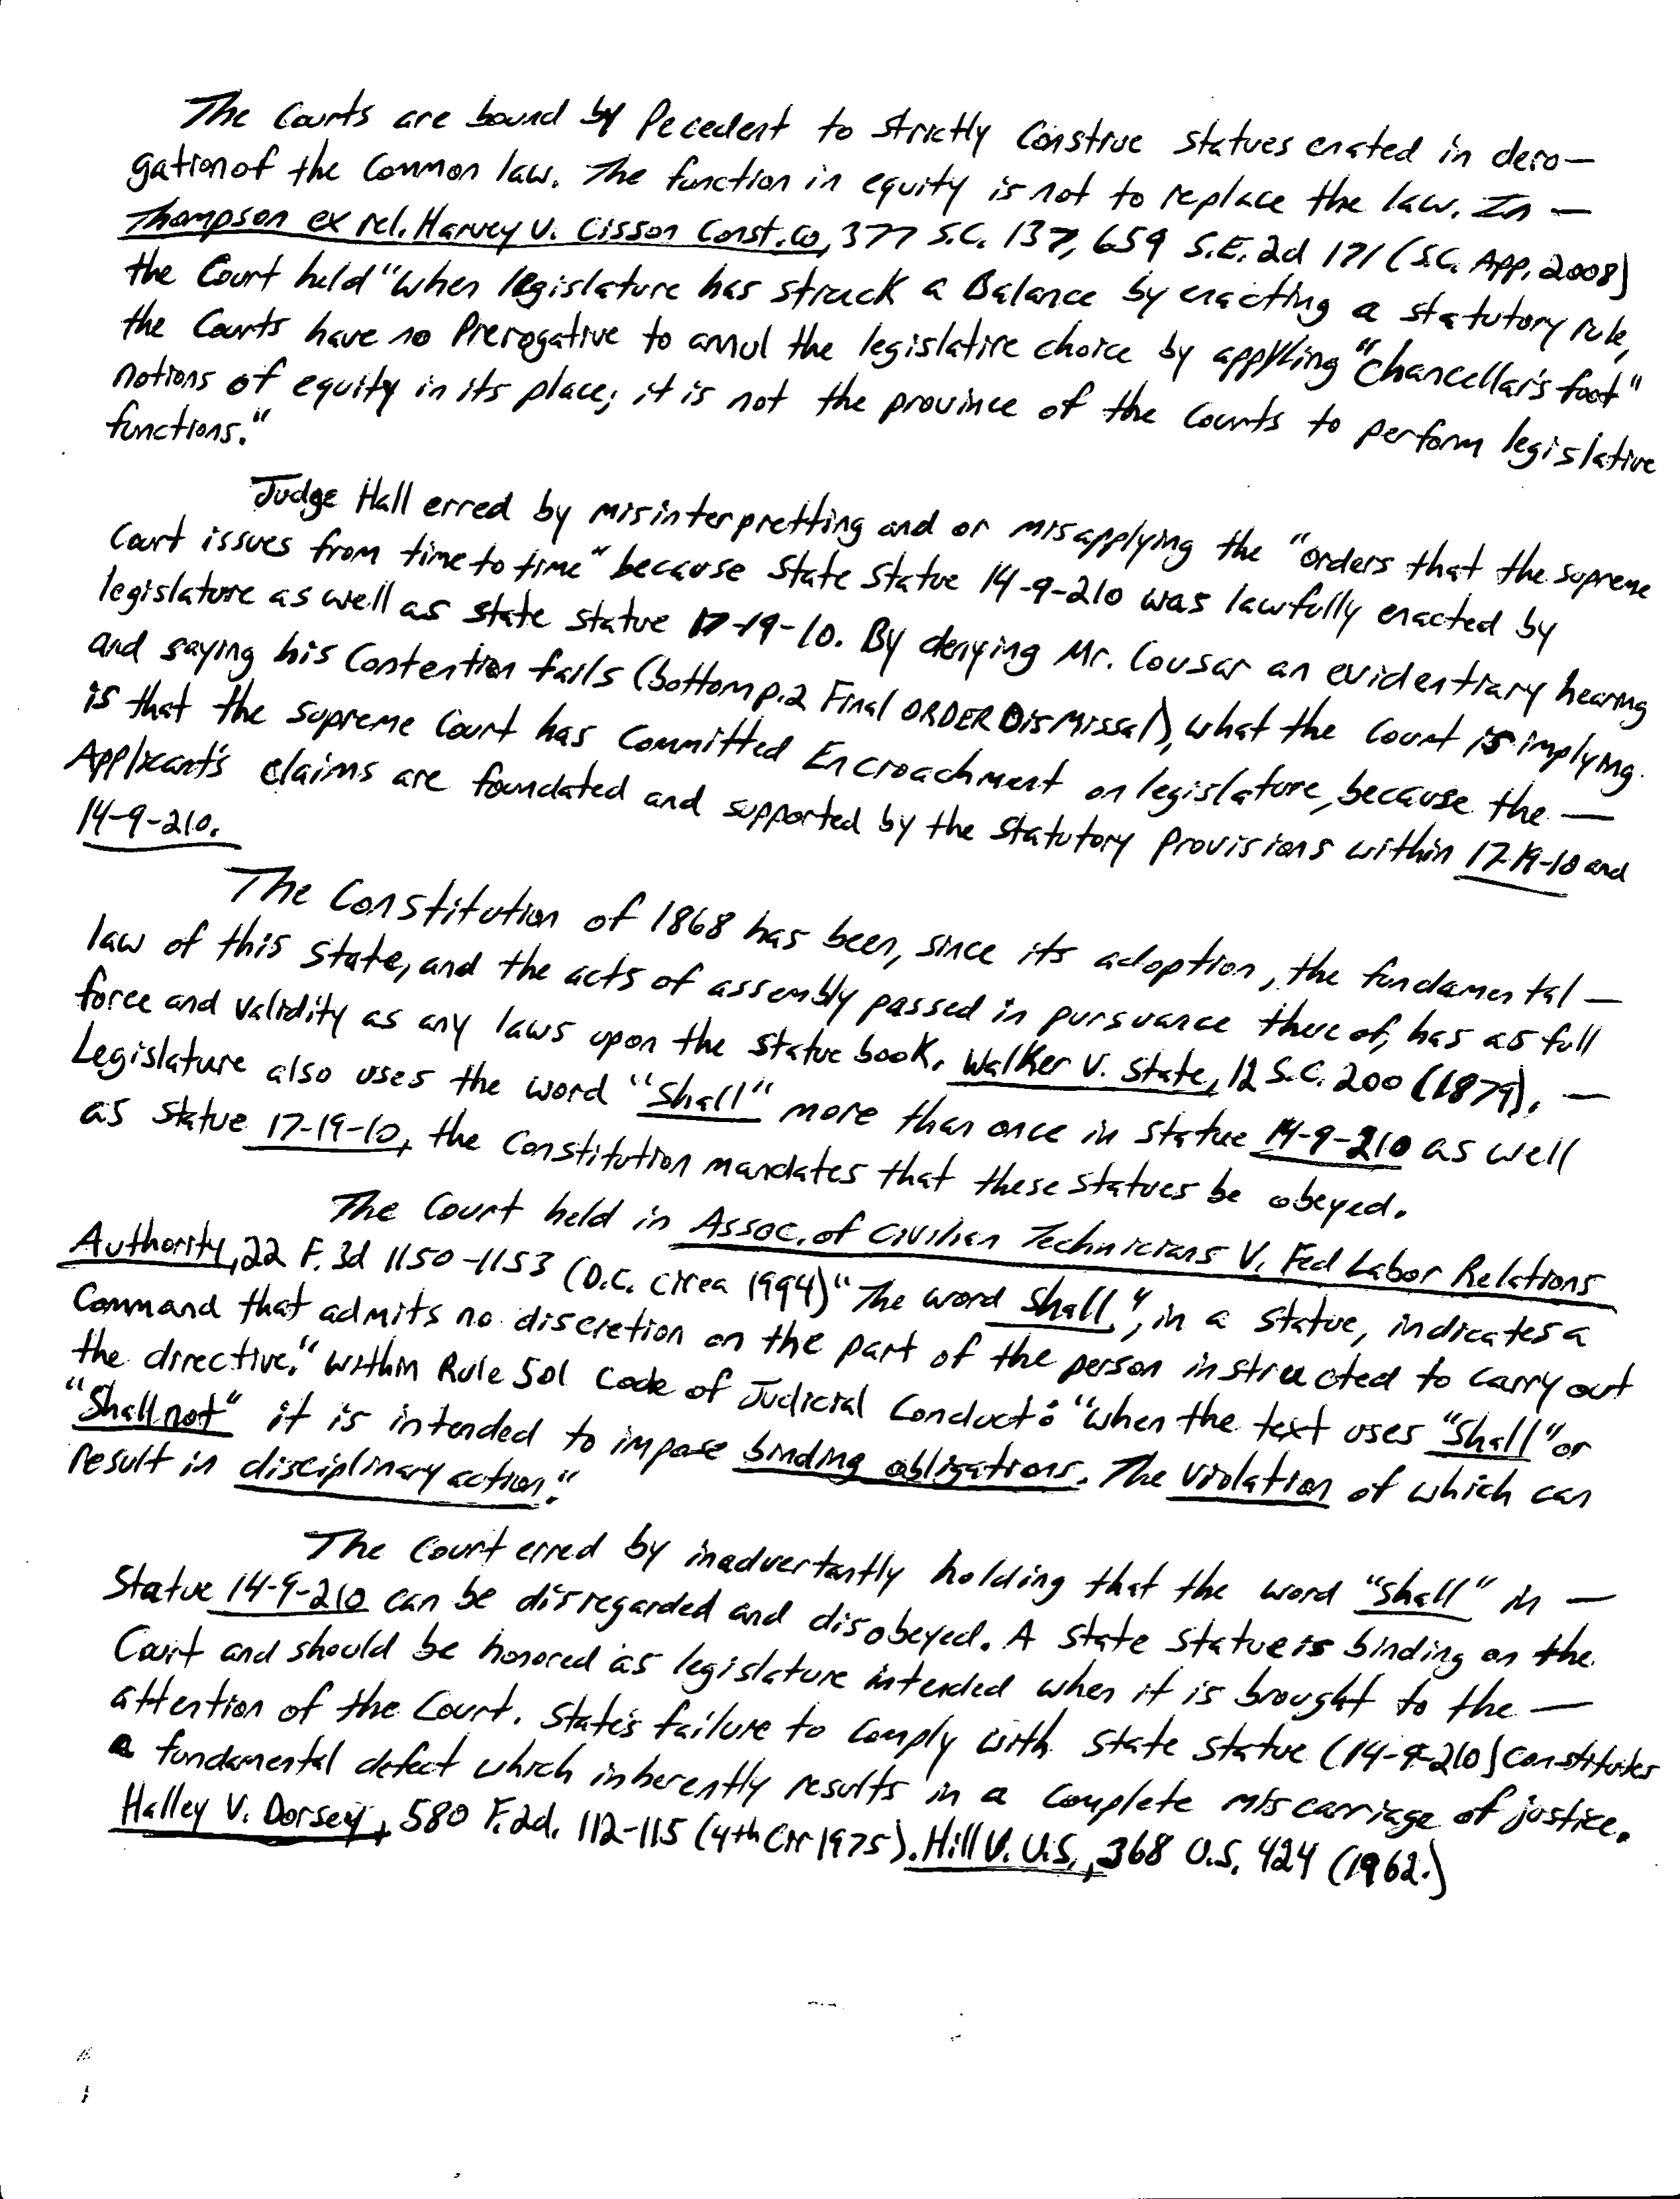 The Courts are bound by Pecedent to strictly Construe statues enated in dero—
gation of the Common law. The function in equity is not to replace the law. In —
Thompson ex rel. Harvey V. Cisson Const. Co, 377 S.C. 137, 659 S.E. 2d 171 (S.C. App. 2008)
the Court held "when legislature has struck a Balance by enacting a statutory rule,
the Courts have no Prerogative to annul the legislative choice by applying "chancellar's foot"
notions of equity in its place; it is not the province of the Courts to perform legislative
functions."
Judge Hall erred by misinterpretting and or misapplying the "orders that the supreme
Court issues from time to time" because State Statue 14-9-210 was lawfully enacted by
legislature as well as state statue 17-19-10. By denying Mr. Cousar an evidentiary hearing
and saying his Contention fails (bottom p.2 Final ORDER DisMissal), what the Court is implying
is that the Supreme Court has Committed Encroachment on legislature, because the —
Applicant's claims are foundated and supported by the Statutory Provisions within 17-19-10 and
14-9-210.
The Constitution of 1868 has been, since its adoption, the fundamental —
law of this State, and the acts of assembly passed in pursuance there of, has as full
force and validity as any laws upon the statue book. Walker V. State, 12 S.C. 200 (1879). —
Legislature also uses the word "Shall" more than once in statue 14-9-210 as well
as statue 17-19-10, the Constitution mandates that these statues be obeyed.
The Court held in Assoc. of Civilian Technicians V. Fed Labor Relations
Authority, 22 F. 3d 1150-1153 (D.C. Circa 1994) "The word shall", in a statue, indicates a
Command that admits no discretion on the part of the person instructed to carry out
the directive." Within Rule 501 Code of Judicial Conduct: "when the text uses "Shall" or
"Shall not" it is intended to impose binding obligations. The Violation of which can
result in disciplinary action."
The Court erred by inadvertantly holding that the word "Shall" in —
Statue 14-9-210 can be disregarded and disobeyed. A State Statue is binding on the
Court and should be honored as legislature intended when it is brought to the —
attention of the Court. State's failure to Comply with State Statue (14-9-210) Constitutes
a fundamental defect which inherently results in a Complete miscarriage of justice.
Halley V. Dorsey, 580 F.2d. 112-115 (4th Cir 1975). Hill V. U.S., 368 U.S. 424 (1962.)